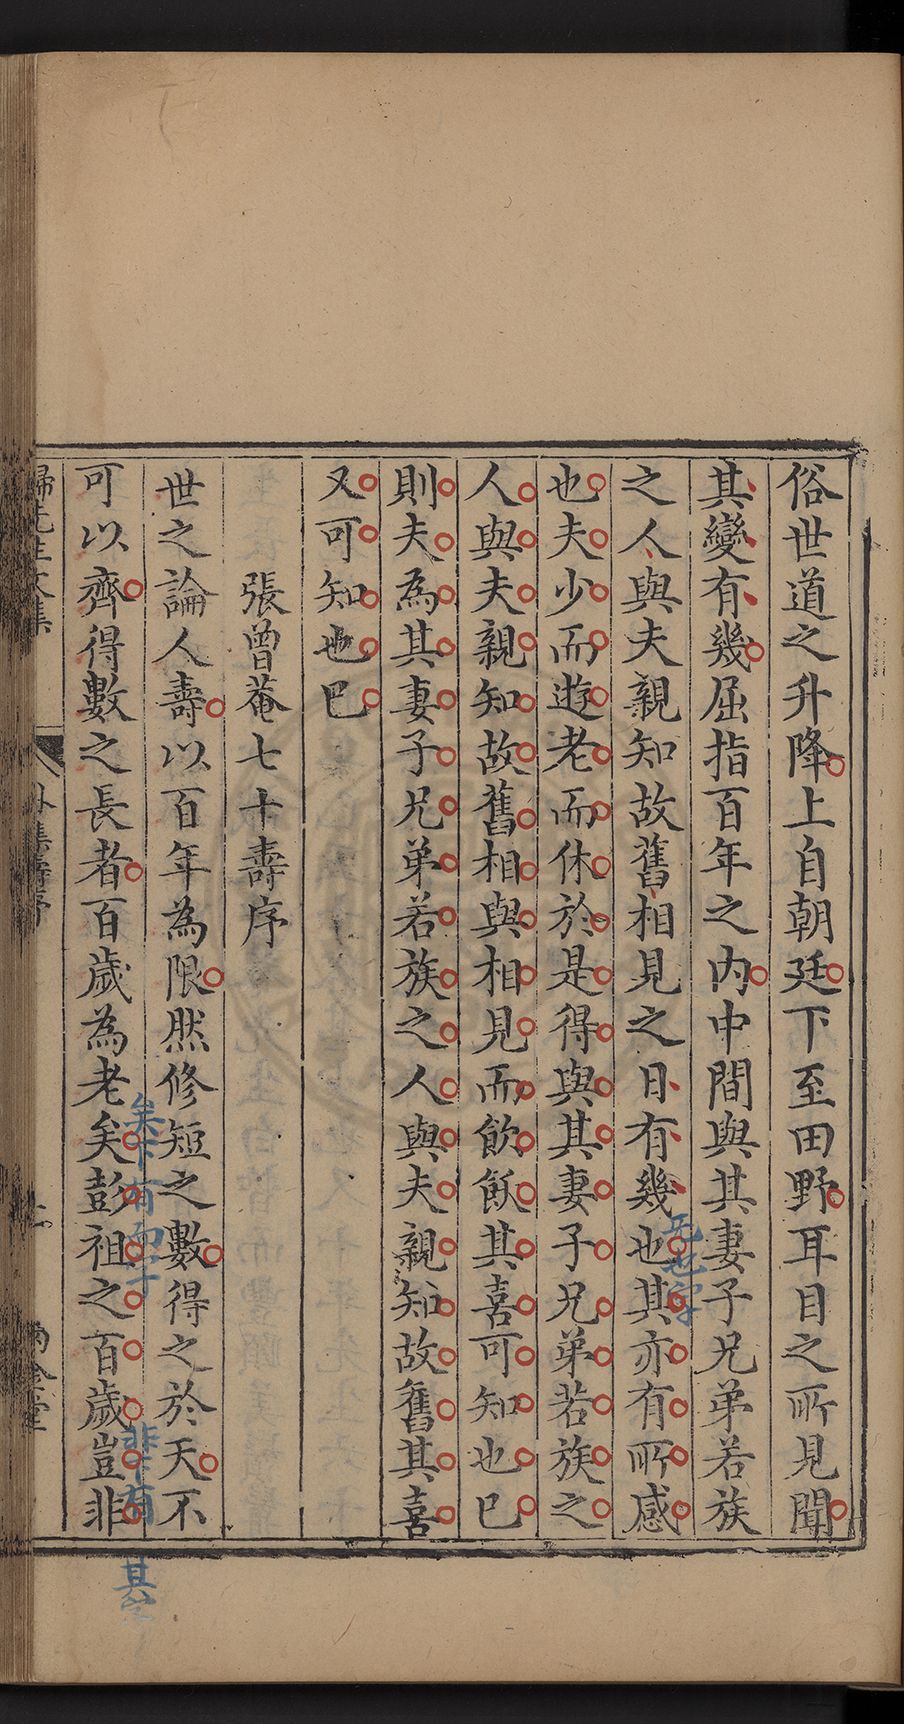 俗世道之升降上自朝廷下至田野耳目之所見聞
其變有幾屈指百年之內中間與其妻子兄弟若族
之人與夫親知故舊相見之日有幾也其亦有所感
无也字
也夫少而遊老而休於是得與其妻子兄弟若族之
人與夫親知故舊相與相見而飲飫其喜可知也巳
則夫為其妻子兄弟若族之人與夫親知故舊其喜
又可知也巳
張曾菴七十壽序
世之論人壽以百年為限然修短之數得之於天不
矣下有而字
非有其字
可以齊得數之長者百歲為老矣彭祖之百歲豈非
歸先生文集
外集壽序